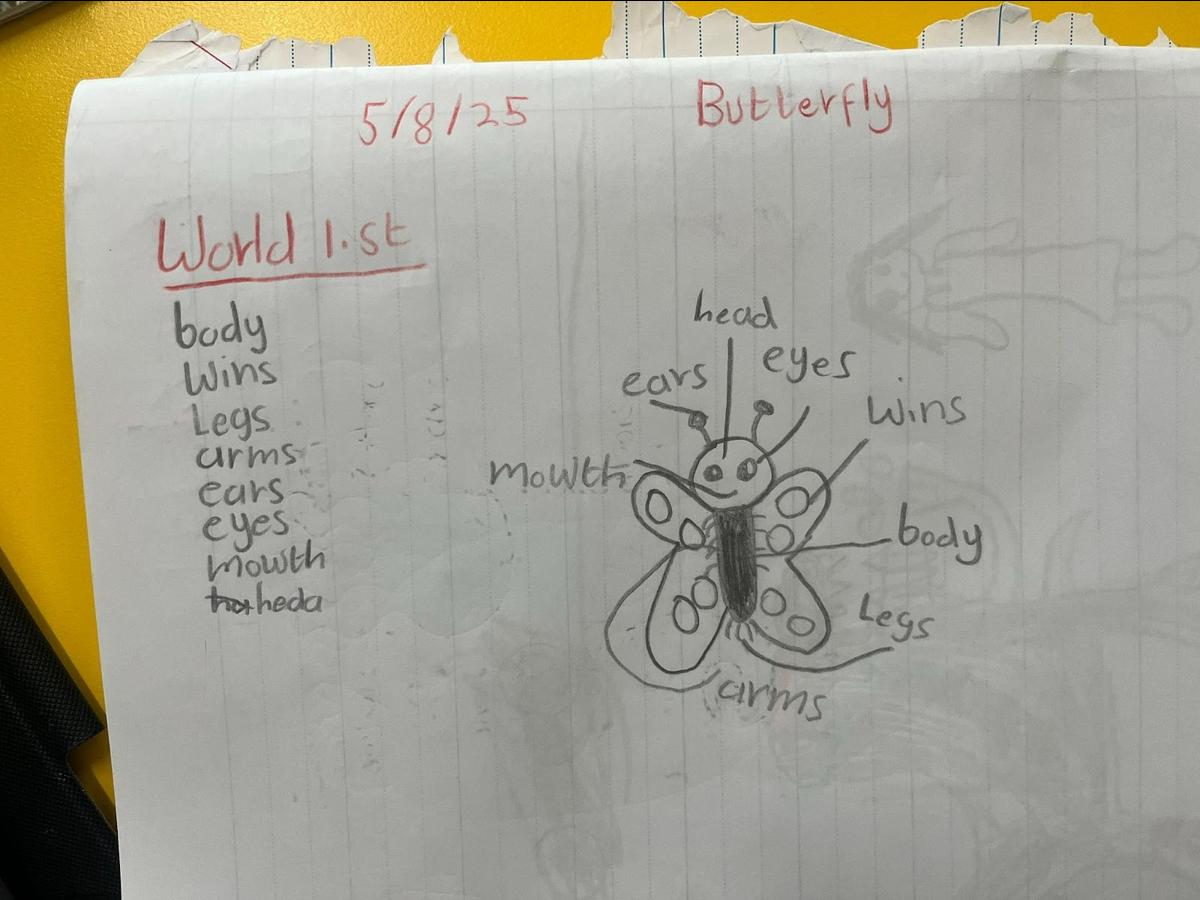 5/8/25 Butterfly
World list
body
wins
Legs
arms
ears
eyes
mowth
heda
head
ears eyes
wins
mowth
body
Legs
arms